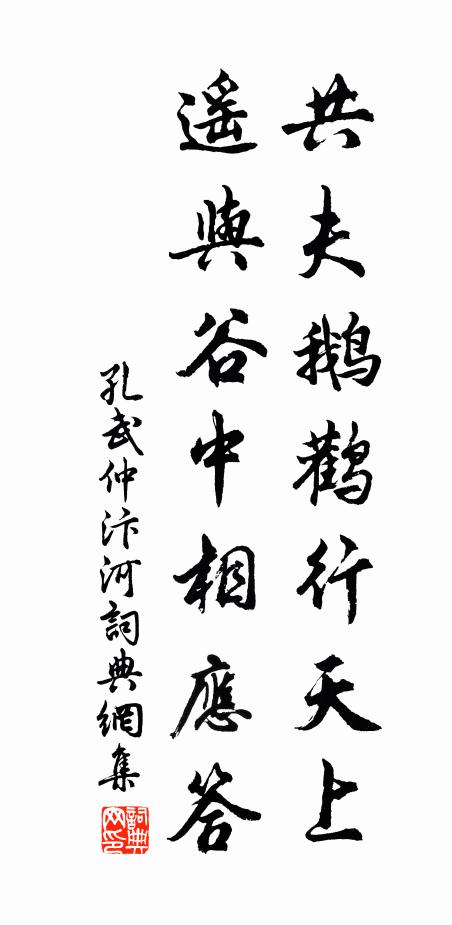 共夫鹅鹳行天上
遥與谷中相應答
孔武仲汴河詞典網集
詞典网印